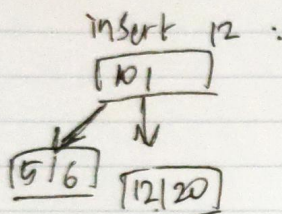 insert 12 :
10
5 6
12 20